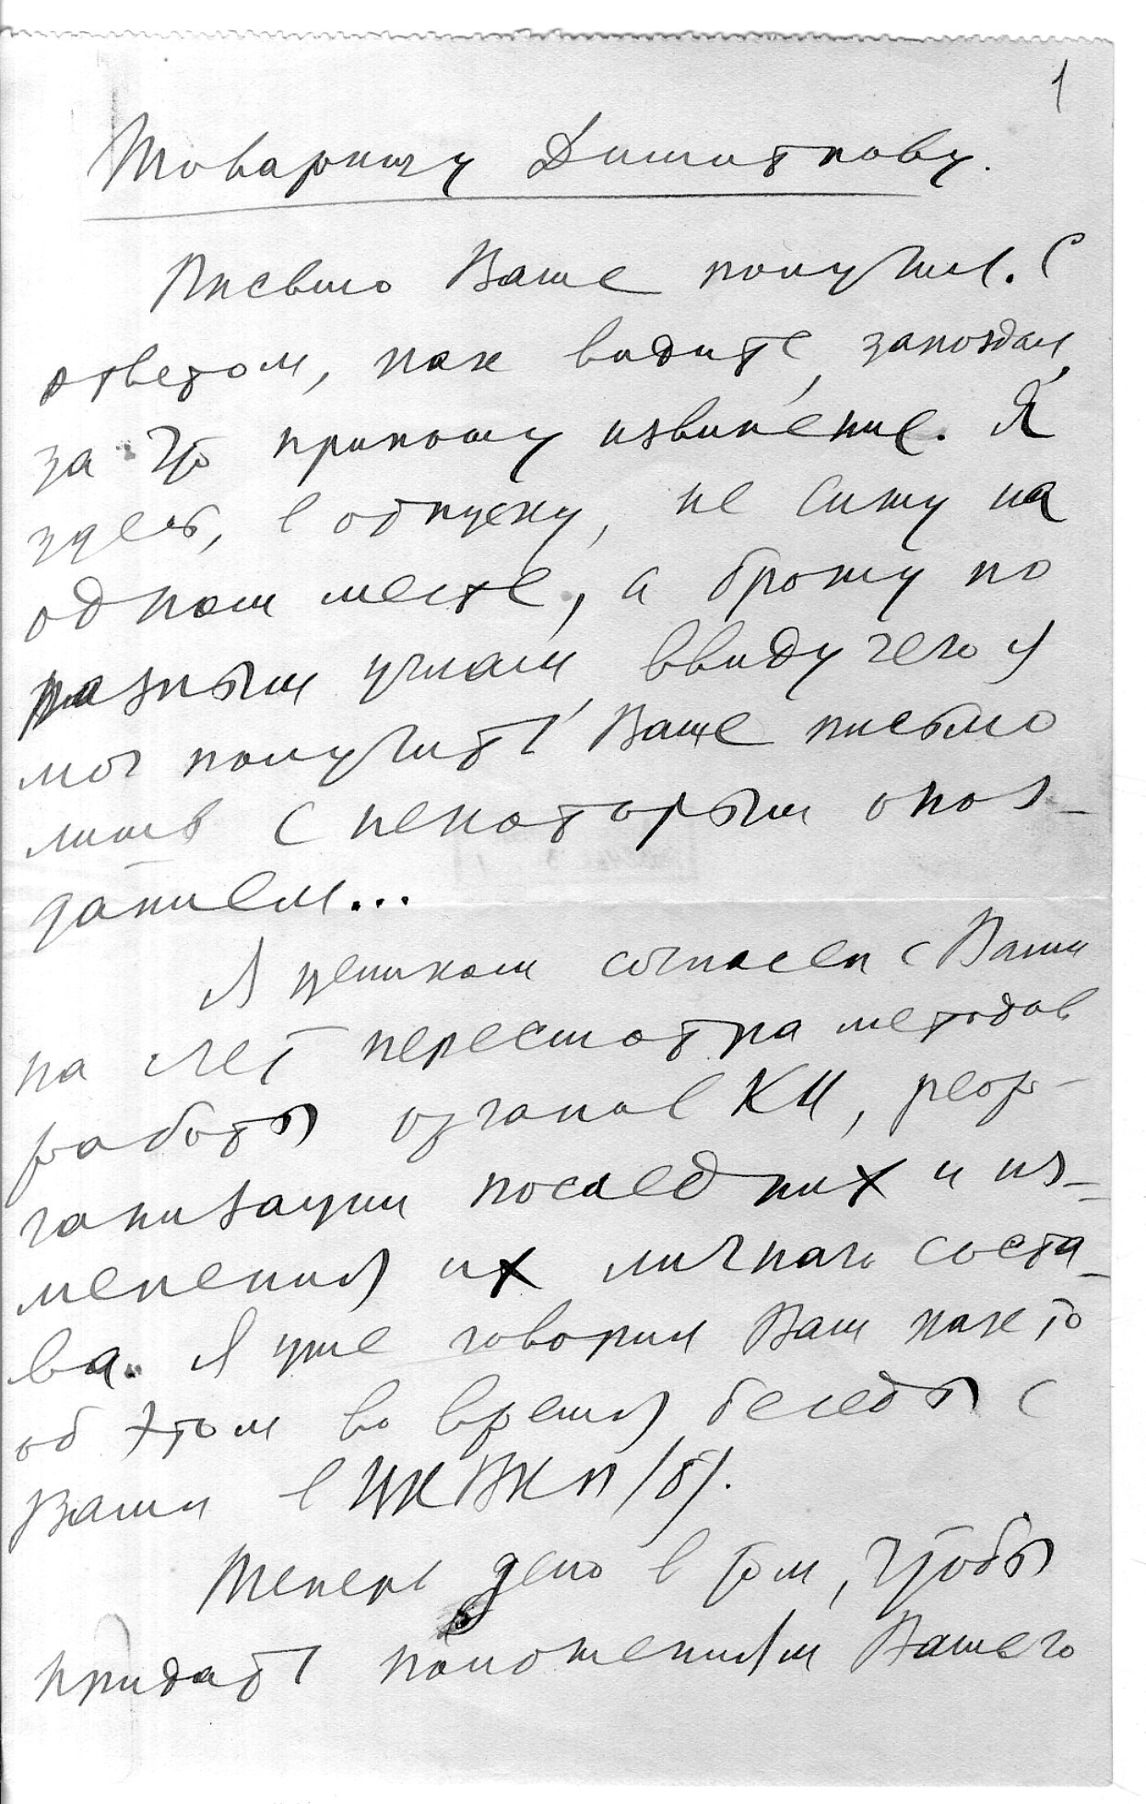 1
Товарищу Димитрову.
Письмо Ваше получил. С
ответом, как видите, запоздал,
за что приношу извинение. Я
здесь, в отпуску, не сижу на
одном месте, а брожу по
разным углам, ввиду чего я
мог получить Ваше письмо
лишь с некоторым опоз-
данием...
Я целиком согласен с Вами
на счет пересмотра методов
работы органов КИ, реор-
ганизации последних и из-
менения их личного соста-
ва. Я уже говорил Вам как то
об этом во время беседы с
Вами в ЦК ВКП/б/.
Теперь дело в том, чтобы
придать положениям Вашего